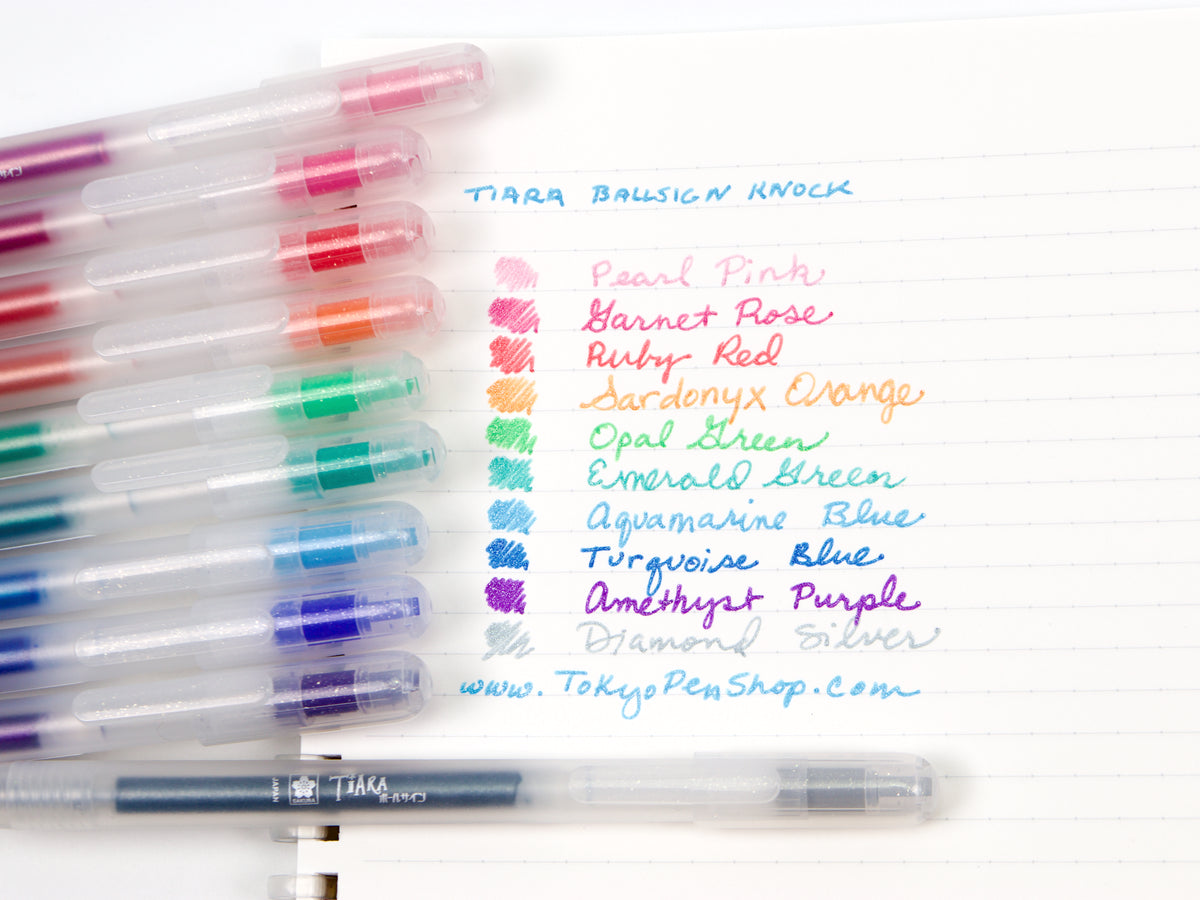 TIARA BALLSIGN KNOCK
Pearl Pink
Garnet Rose
Ruby Red
Sardonyx Orange
Opal Green
Emerald Green
Aquamarine Blue
Turquoise Blue
Amethyst Purple
Diamond Silver
www.TokyoPenShop.com
JAPAN
SAKURA
TIARA
ボールサイン
サイン